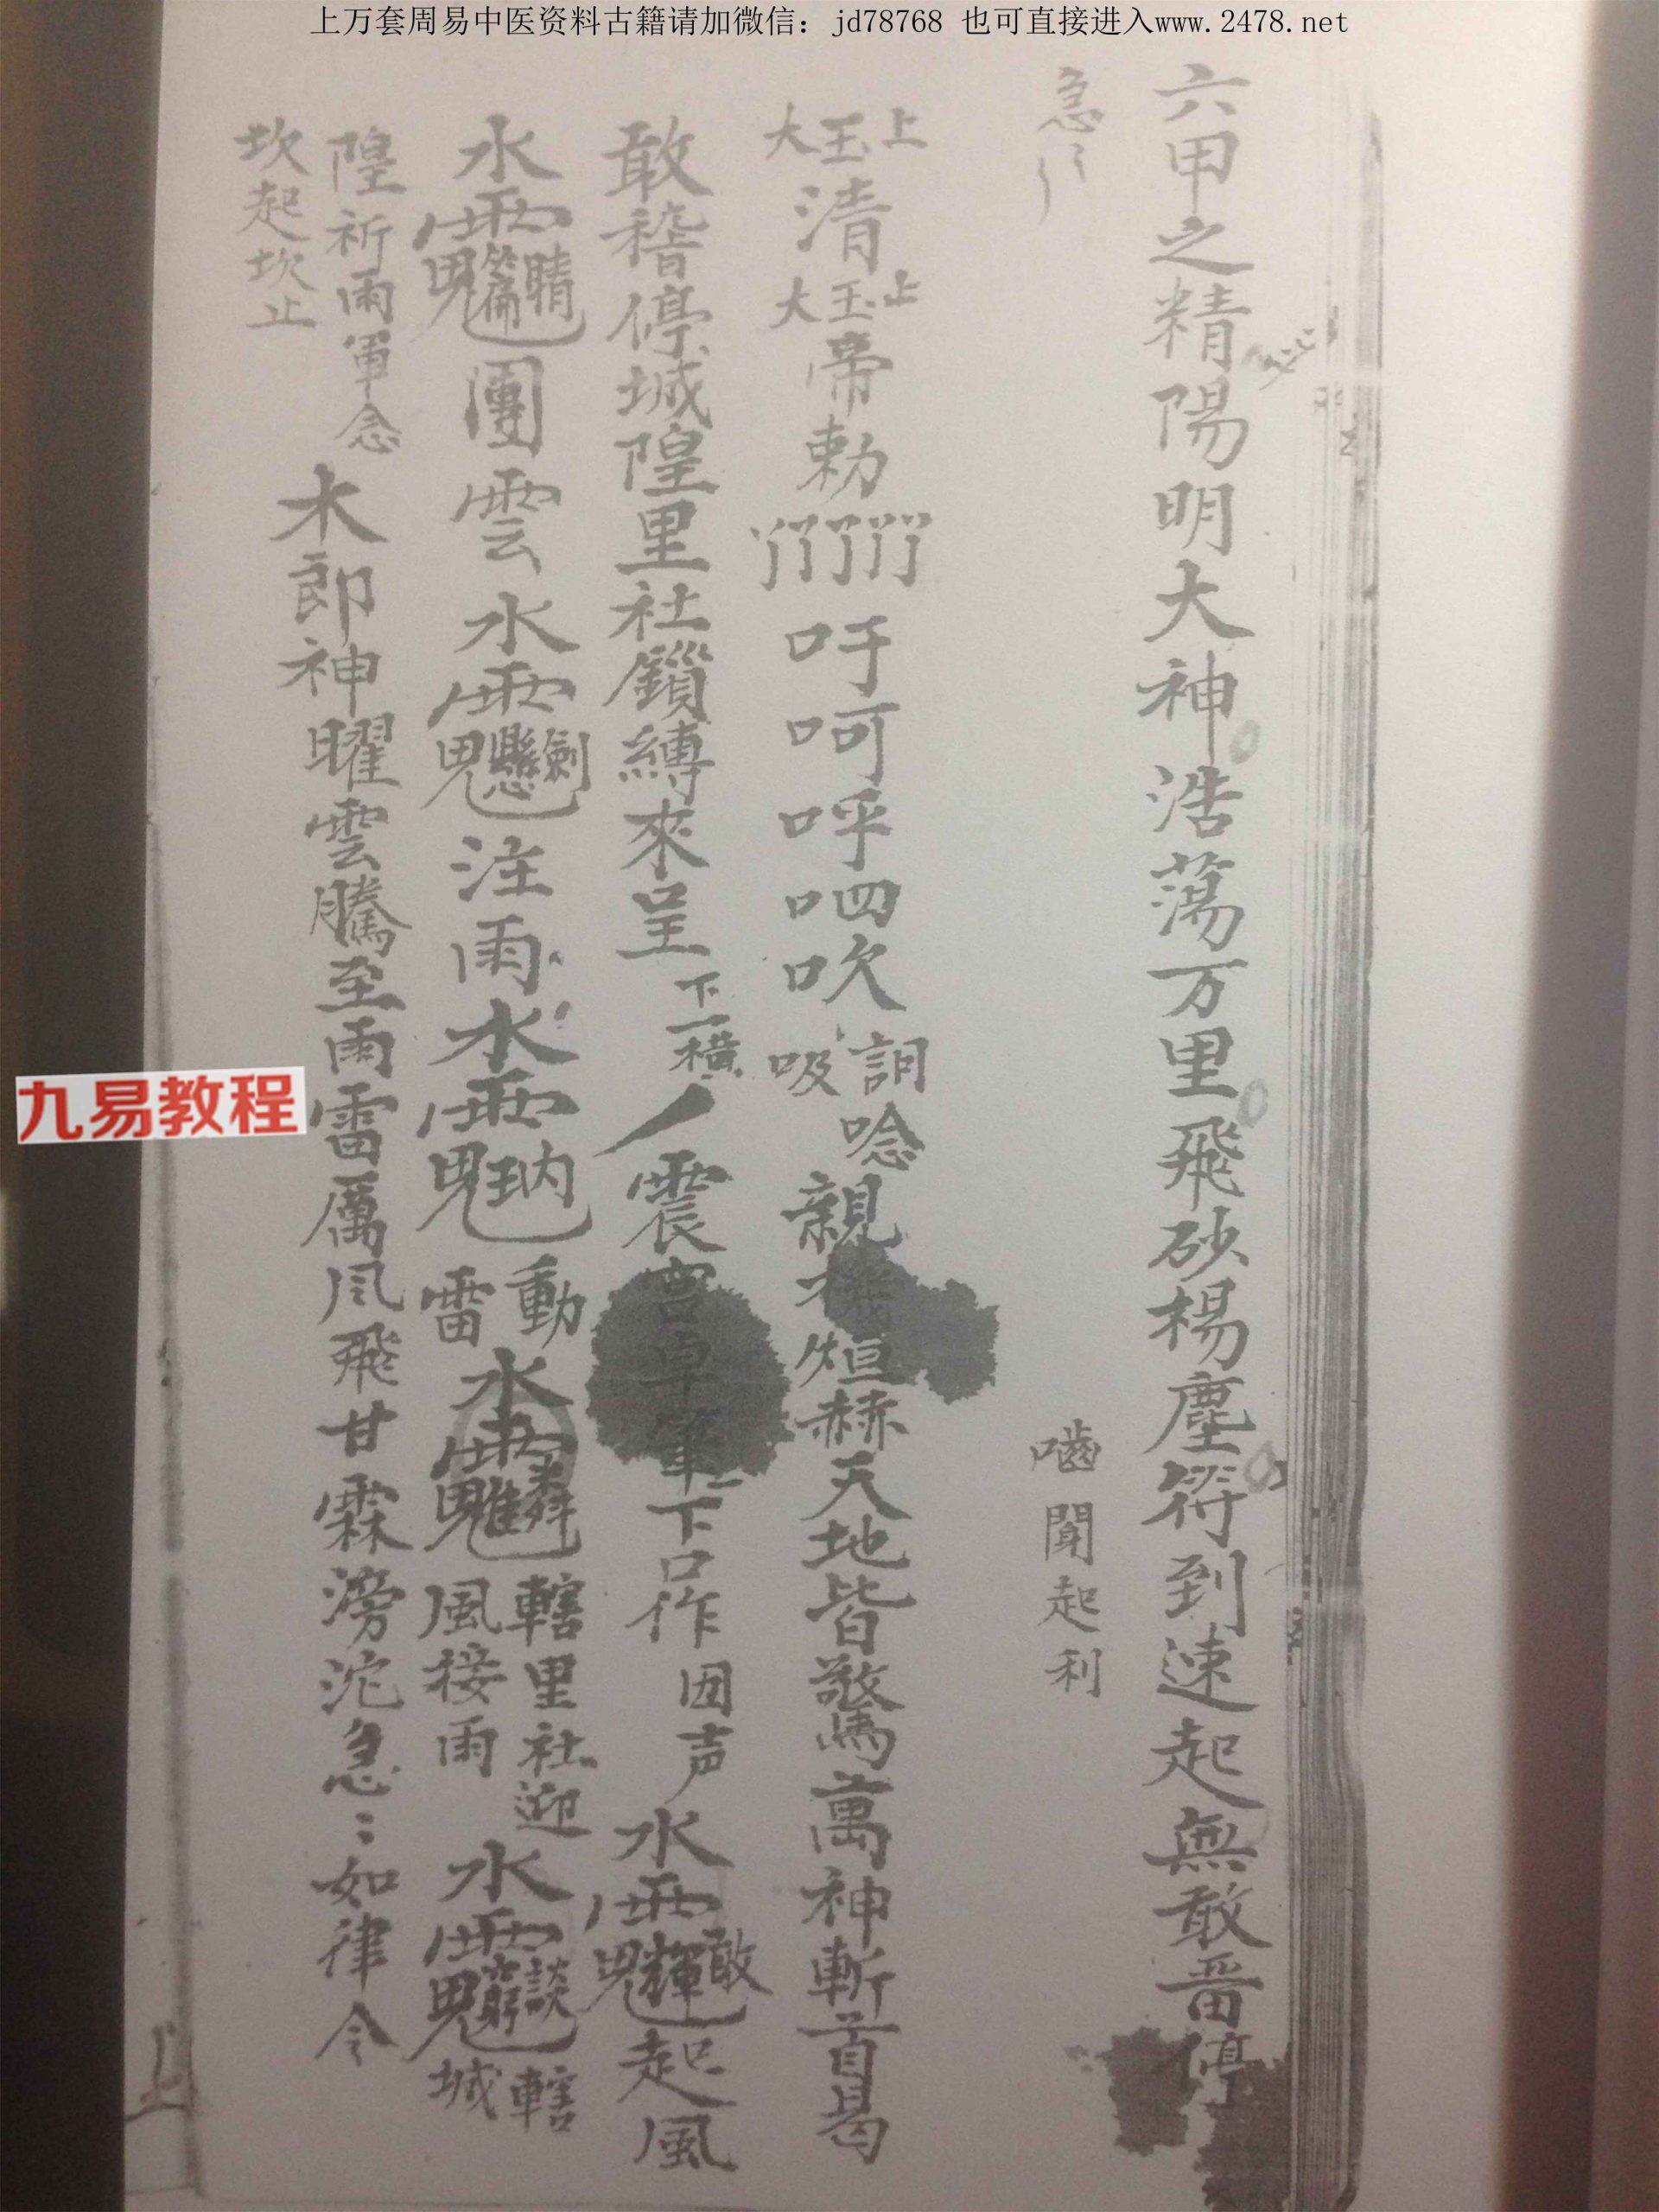 上万套周易中医资料古籍请加微信：jd78768 也可直接进入www.2478.net
六甲之精陽明大神浩蕩万里飛砂楊塵符到速起無敢畱停
急
嚙聞起利
上玉大清上玉大帝勅
吁呵呼呬吹吸
詞唸
親
烜赫天地皆驚萬神斬首曷
敢稽停城隍里社鎖縛來呈
下一橫
震宮卓筆下口作
因声
水
起風
水
團雲
水
注雨
水
動雷
水
轄里社迎風接雨
水
轄城
隍祈雨軍念
坎起坎止
木郎神曜雲騰至雨雷厲風飛甘霖滂沱急〻如律令
上
九易教程